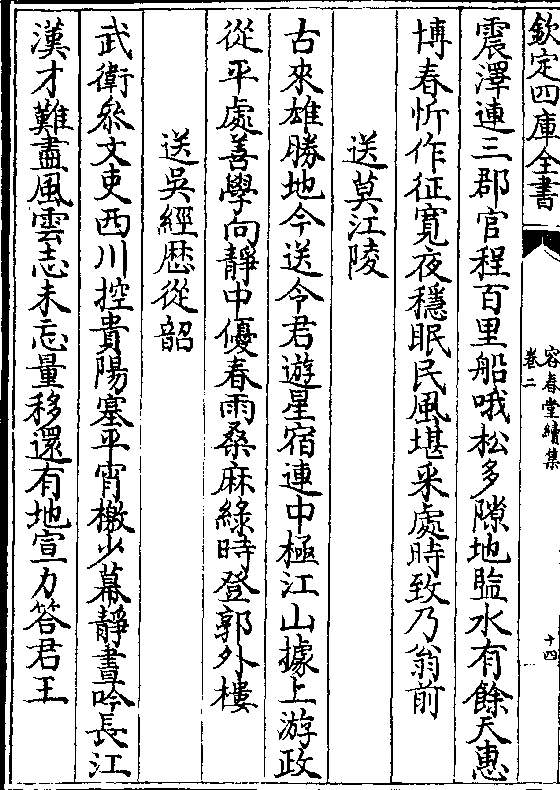 欽定四庫全書
容春堂續集
卷二
十四
震澤連三郡官程百里船哦松多隙地監水有餘天惠
博春忻作征寛夜穩眠民風堪采處時致乃翁前
送莫江陵
古來雄勝地今送令君遊星宿連中極江山據上游政
從平處善學向靜中優春雨桑麻綠時登郭外樓
送吳經歴從韶
武衛叅文吏西川控貴陽塞平宵檄少幕靜晝吟長江
漢才難盡風雲志未忘量移還有地宣力答君王